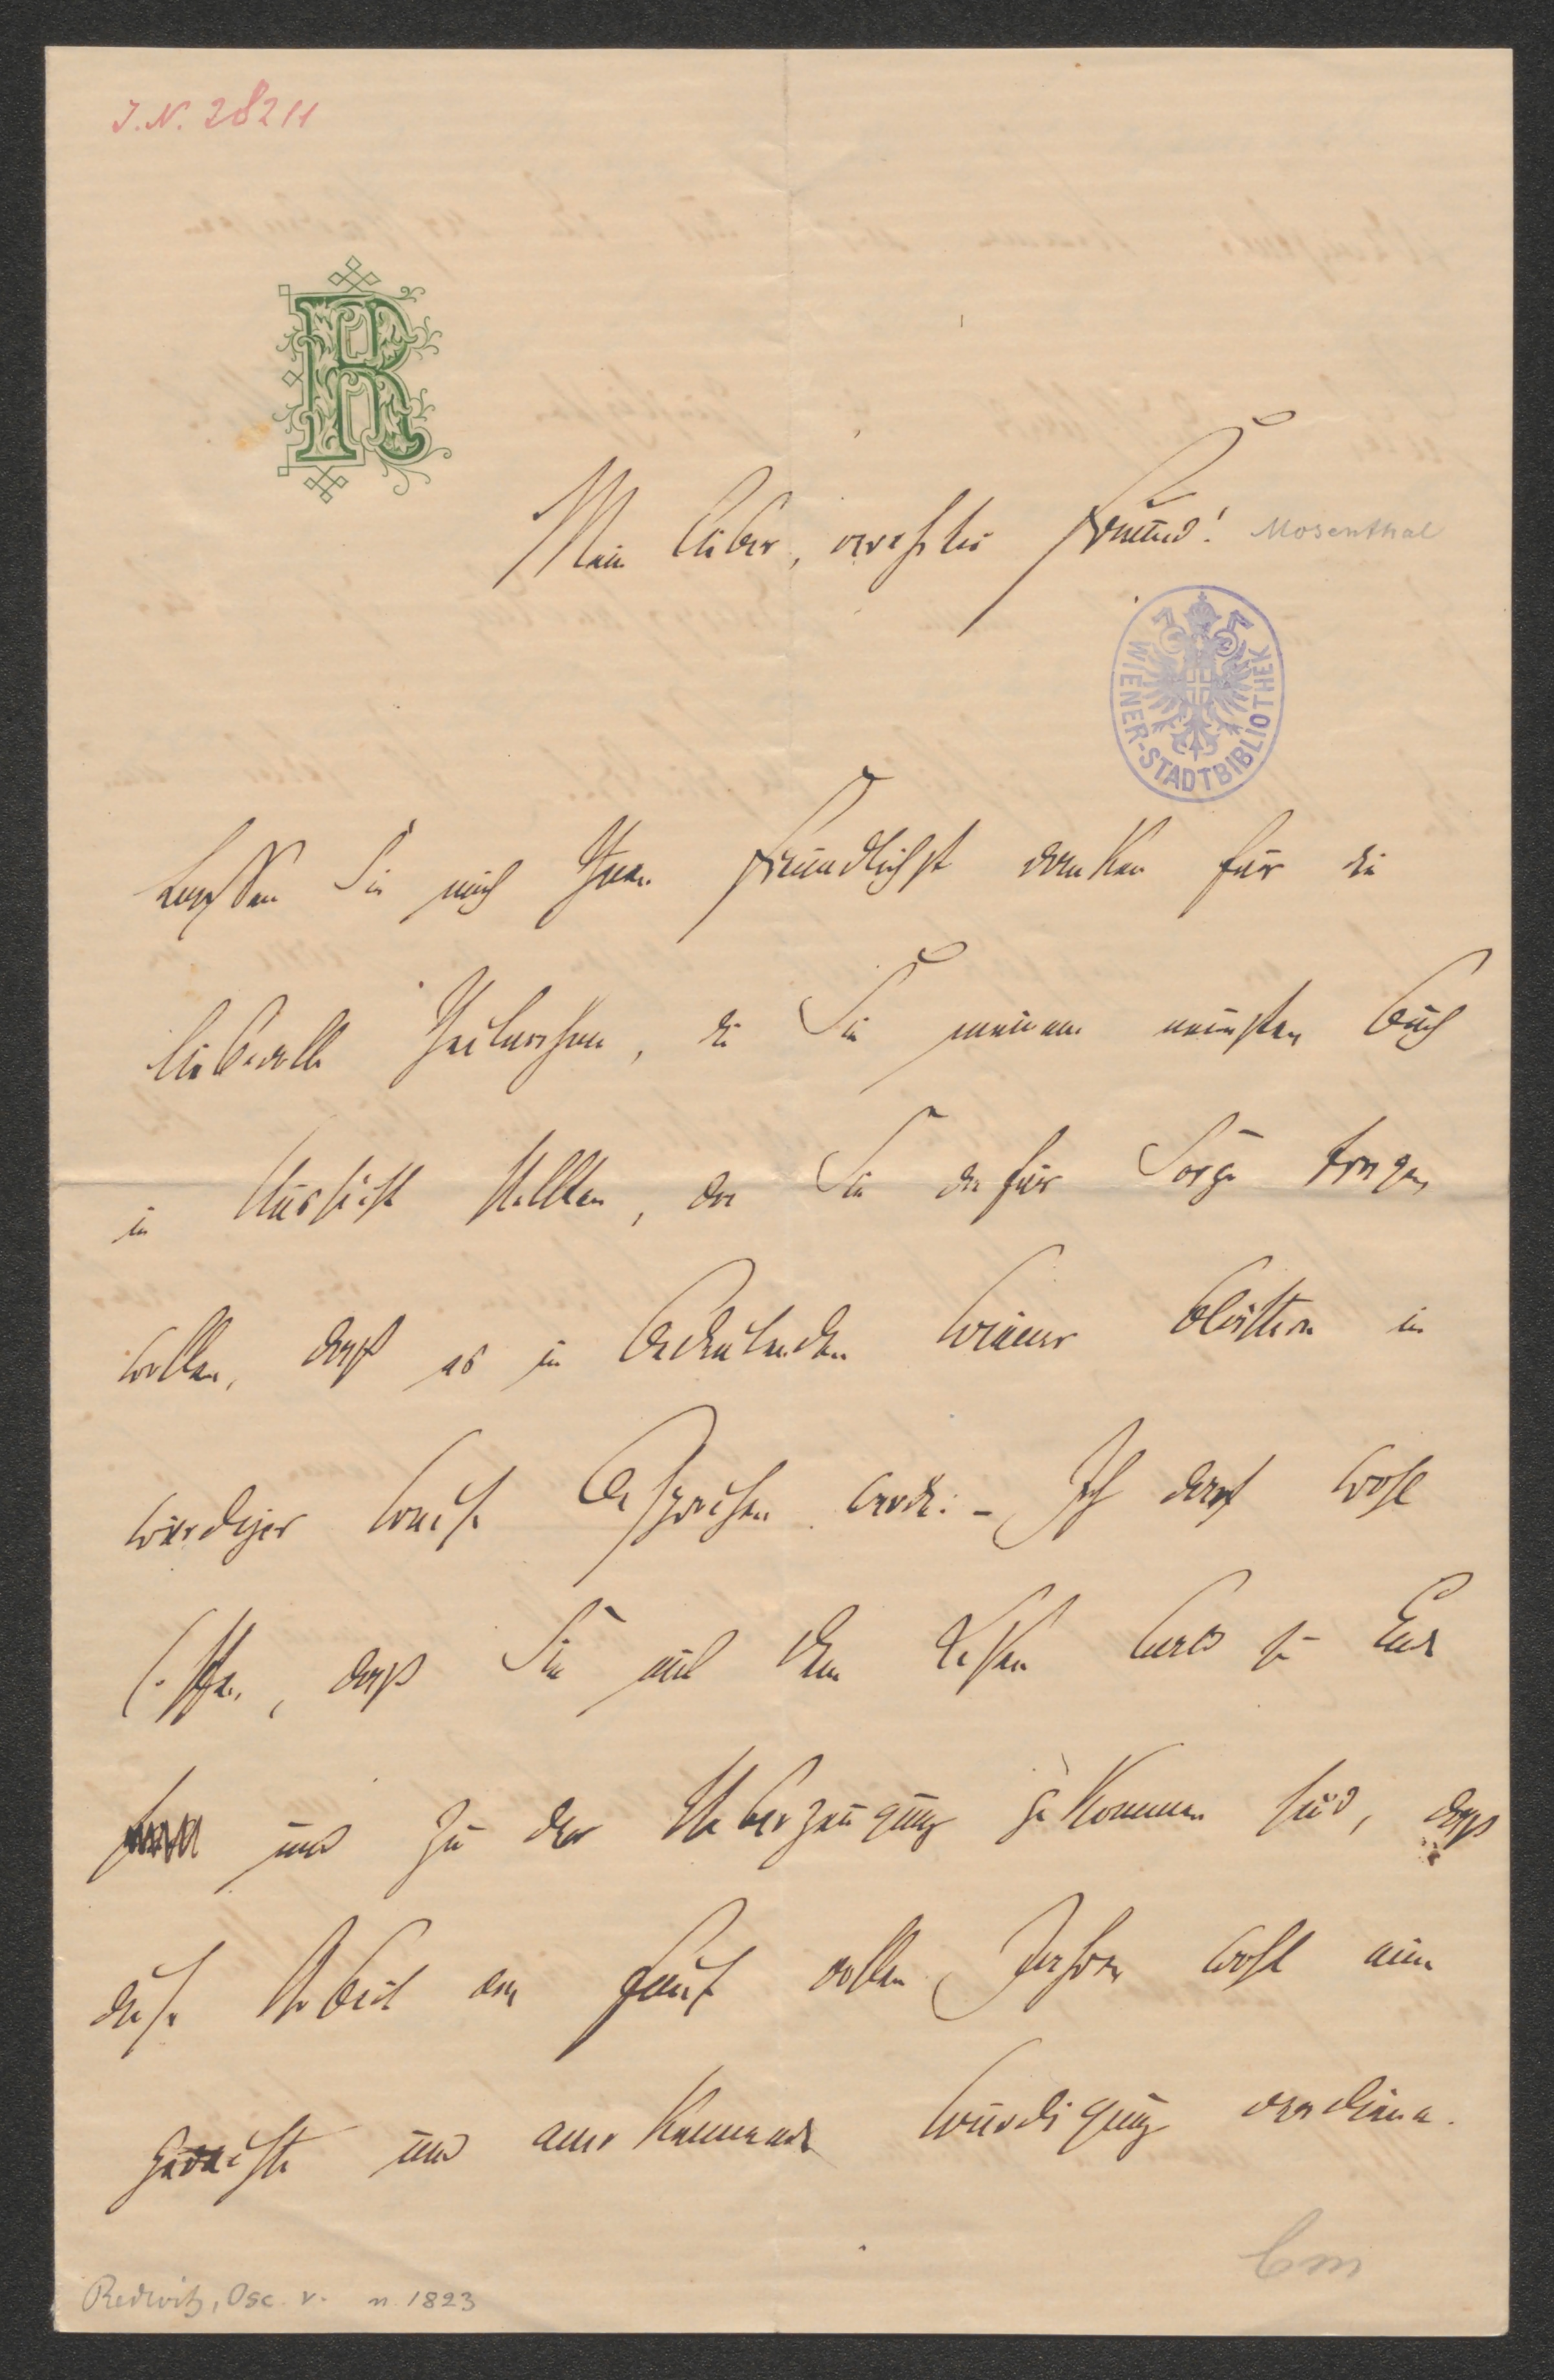 J. N. 28211
R
Mein lieber, verehrter Freund!
Mosenthal
WIENER-STADTBIBLIOTHEK
Lassen Sie mich Ihnen freundlichst danken für die
liebevolle Theilnahme, die Sie meinem neuesten Buch
in Aussicht stellten, da Sie dafür Sorge tragen
wollen, daß es in bedeutenden Wiener Blättern in
würdiger Weise besprochen werde. – Ich darf wohl
hoffen, daß Sie mit dem Lesen bereits zu Ende
und zu der Ueberzeugung gekommen sind, daß
diese Arbeit von fünf vollen Jahren wohl eine
gerechte und anerkennende Würdigung verdiene.
Redwitz, Osc. v. n. 1823